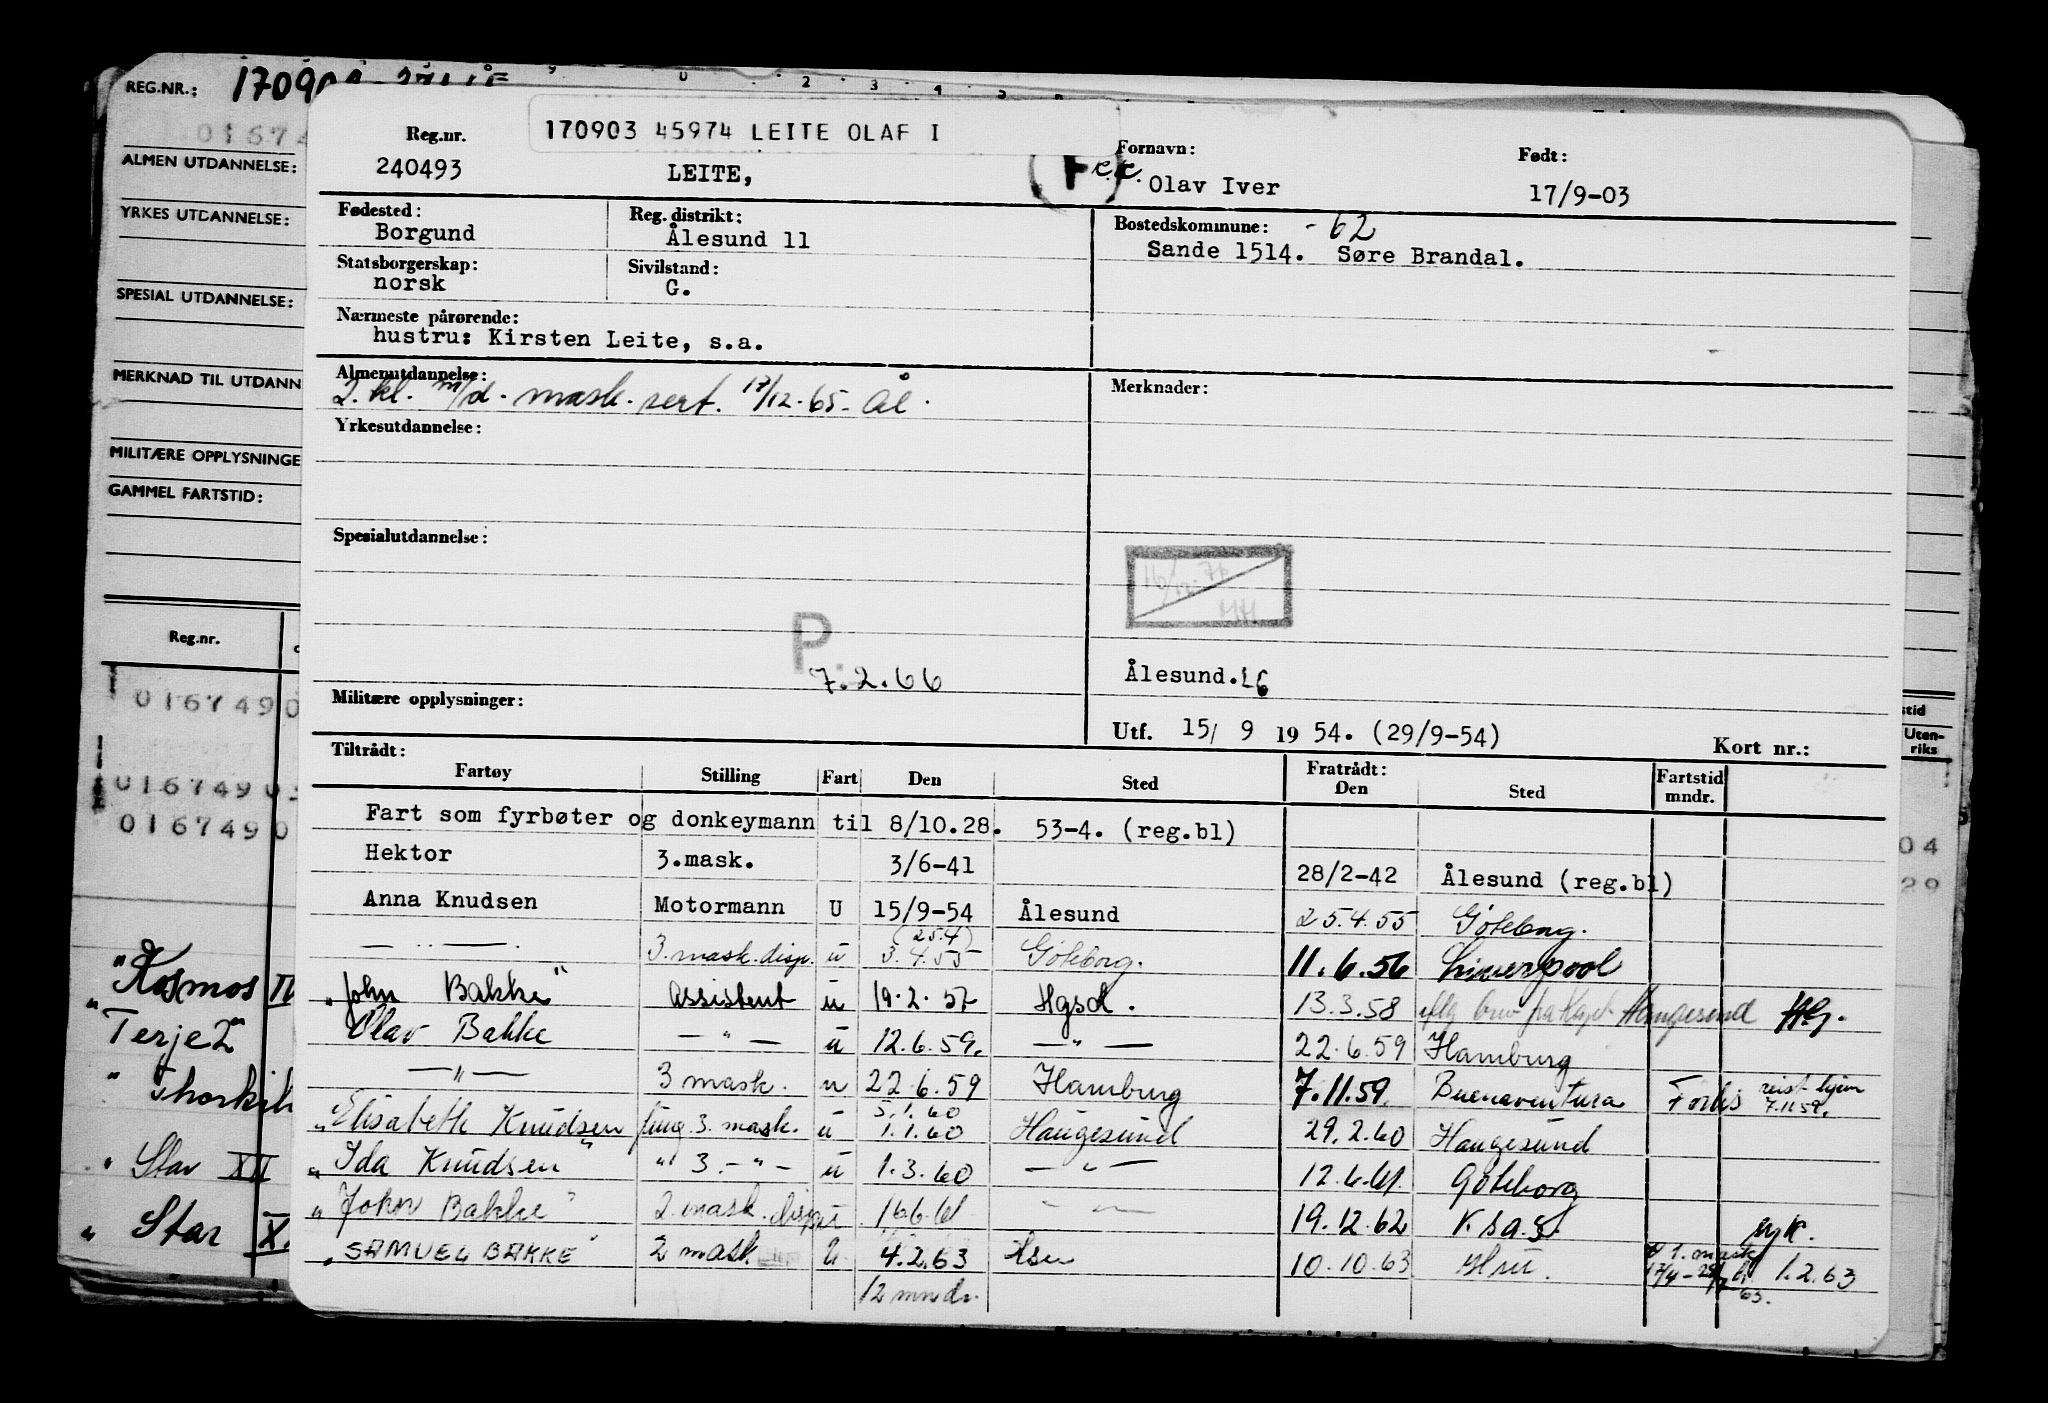 REG.NR.: 17090
01674
ALMEN UTDANNELSE:
YRKES UTDANNELSE:
SPESIAL UTDANNELSE:
MERKNAD TIL UTDANN
MILITÆRE OPPLYSNINGE
GAMMEL FARTSTID:
Reg.nr.
0167490
0167490
0167490
"Kosmos II
"Terje 2"
"Thorki
"Star XII
"Star X
170903 45974 LEITE OLAF I
Reg.nr. Fornavn: Født:
240493 LEITE, Olav Iver 17/9-03
Fødested: Reg. distrikt: Bostedskommune: -62
Borgund Ålesund 11 Sande 1514. Søre Brandal.
Statsborgerskap: Sivilstand:
norsk G.
Nærmeste pårørende:
hustru: Kirsten Leite, s.a.
Almenutdannelse: Merknader:
2. kl. m/d. mask. sert. 17/12-65- Ål.
Yrkesutdannelse:
Spesialutdannelse:
16/12-71
P.
7.2.66
Ålesund.16
Militære opplysninger:
Utf. 15/ 9 19 54. (29/9-54) Kort nr.:
Tiltrådt: Fratrådt:
Fartøy Stilling Fart Den Sted Den Sted Fartstid mndr.
Fart som fyrbøter og donkeymann til 8/10.28. 53-4. (reg.bl)
Hektor 3.mask. 3/6-41 28/2-42 Ålesund (reg.bl)
Anna Knudsen Motormann U 15/9-54 Ålesund 25.4.55 Göteborg.
— " — 3 mask. disp. u 3.4.55 (25.4) Göteborg. 11.6.56 Liverpool
"John Bakke" Assistent u 19.2.57 Hgsd. 13.3.58 Haugesund
Olav Bakke — " — u 12.6.59. — " — 22.6.59 Hamburg
— " — 3 mask. u 22.6.59 Hamburg 7.11.59. Buenaventura reist hjem 7.11.59.
"Elisabeth Knudsen 3. mask. u 5.1.60 1.1.60 Haugesund 29.2.60 Haugesund
"Ida Knudsen" " 3. - " - u 1.3.60 — " — 12.6.61. Göteborg
"John Bakke" 2 mask. disp u 16.6.61 — " — 19.12.62 syk.
"SAMUEL BAKKE" 2 mask. u. 4.2.63 10.10.63 1. mask 1.2.63
12 mndr.
stid
Uten-
riks
04
29